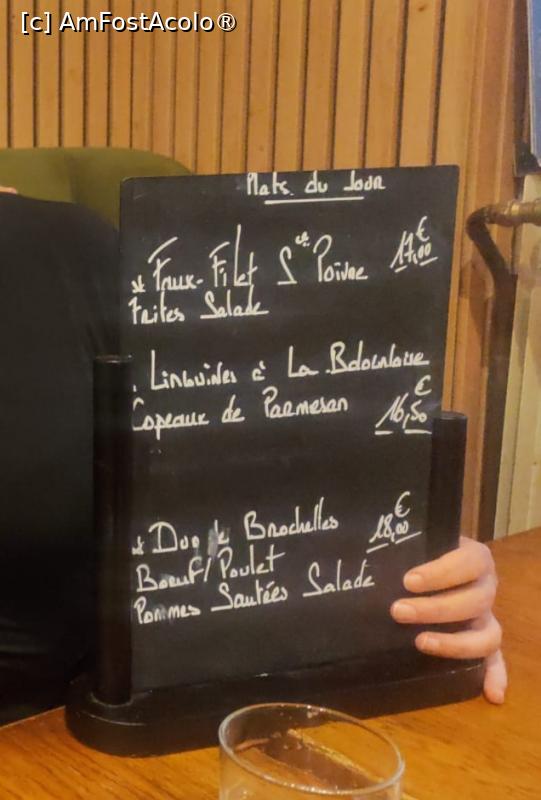 [c] AmFostAcolo®
Plats du Jour
* Faux-Filet Sce Poivre 17,00 €
Frites Salade
. Linguines à La Bolognaise
Copeaux de Parmesan 16,50 €
* Duo de Brochettes 18,00 €
Boeuf/Poulet
Pommes Sautées Salade